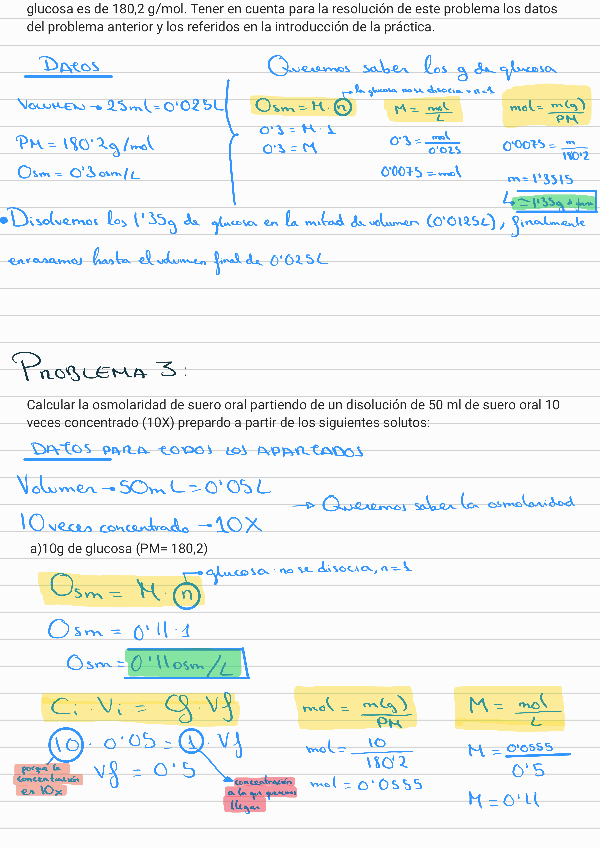 glucosa es de 180,2 g/mol. Tener en cuenta para la resolución de este problema los datos
del problema anterior y los referidos en la introducción de la práctica.
DATOS
Queremos saber los g de glucosa
la glucosa no se disocia → n=1
VOLUMEN → 25ml = 0'025L
Osm = M · n
M = mol/L
mol = m(g)/PM
0'3 = M · 1
0'3 = mol/0'025
0'0075 = m/180'2
PM = 180'2g/mol
0'3 = M
0'0075 = mol
Osm = 0'3osm/L
m = 1'3515
≃ 1'35g
• Disolvemos los 1'35g de glucosa en la mitad de volumen (0'0125L), finalmente
enrasamos hasta el volumen final de 0'025L
PROBLEMA 3:
Calcular la osmolaridad de suero oral partiendo de un disolución de 50 ml de suero oral 10
veces concentrado (10X) prepardo a partir de los siguientes solutos:
DATOS PARA TODOS LOS APARTADOS
Volumen → 50mL = 0'05L
→ Queremos saber la osmolaridad
10 veces concentrado → 10X
a)10g de glucosa (PM= 180,2)
glucosa: no se disocia, n=1
Osm = M · n
Osm = 0'11 · 1
Osm = 0'11osm/L
Ci · Vi = Cf · Vf
mol = m(g)/PM
M = mol/L
10 · 0'05 = 1 · Vf
mol = 10/180'2
M = 0'0555/0'5
porque la
concentración
es 10x
Vf = 0'5
concentración
a la que queremos
llegar
mol = 0'0555
M = 0'11